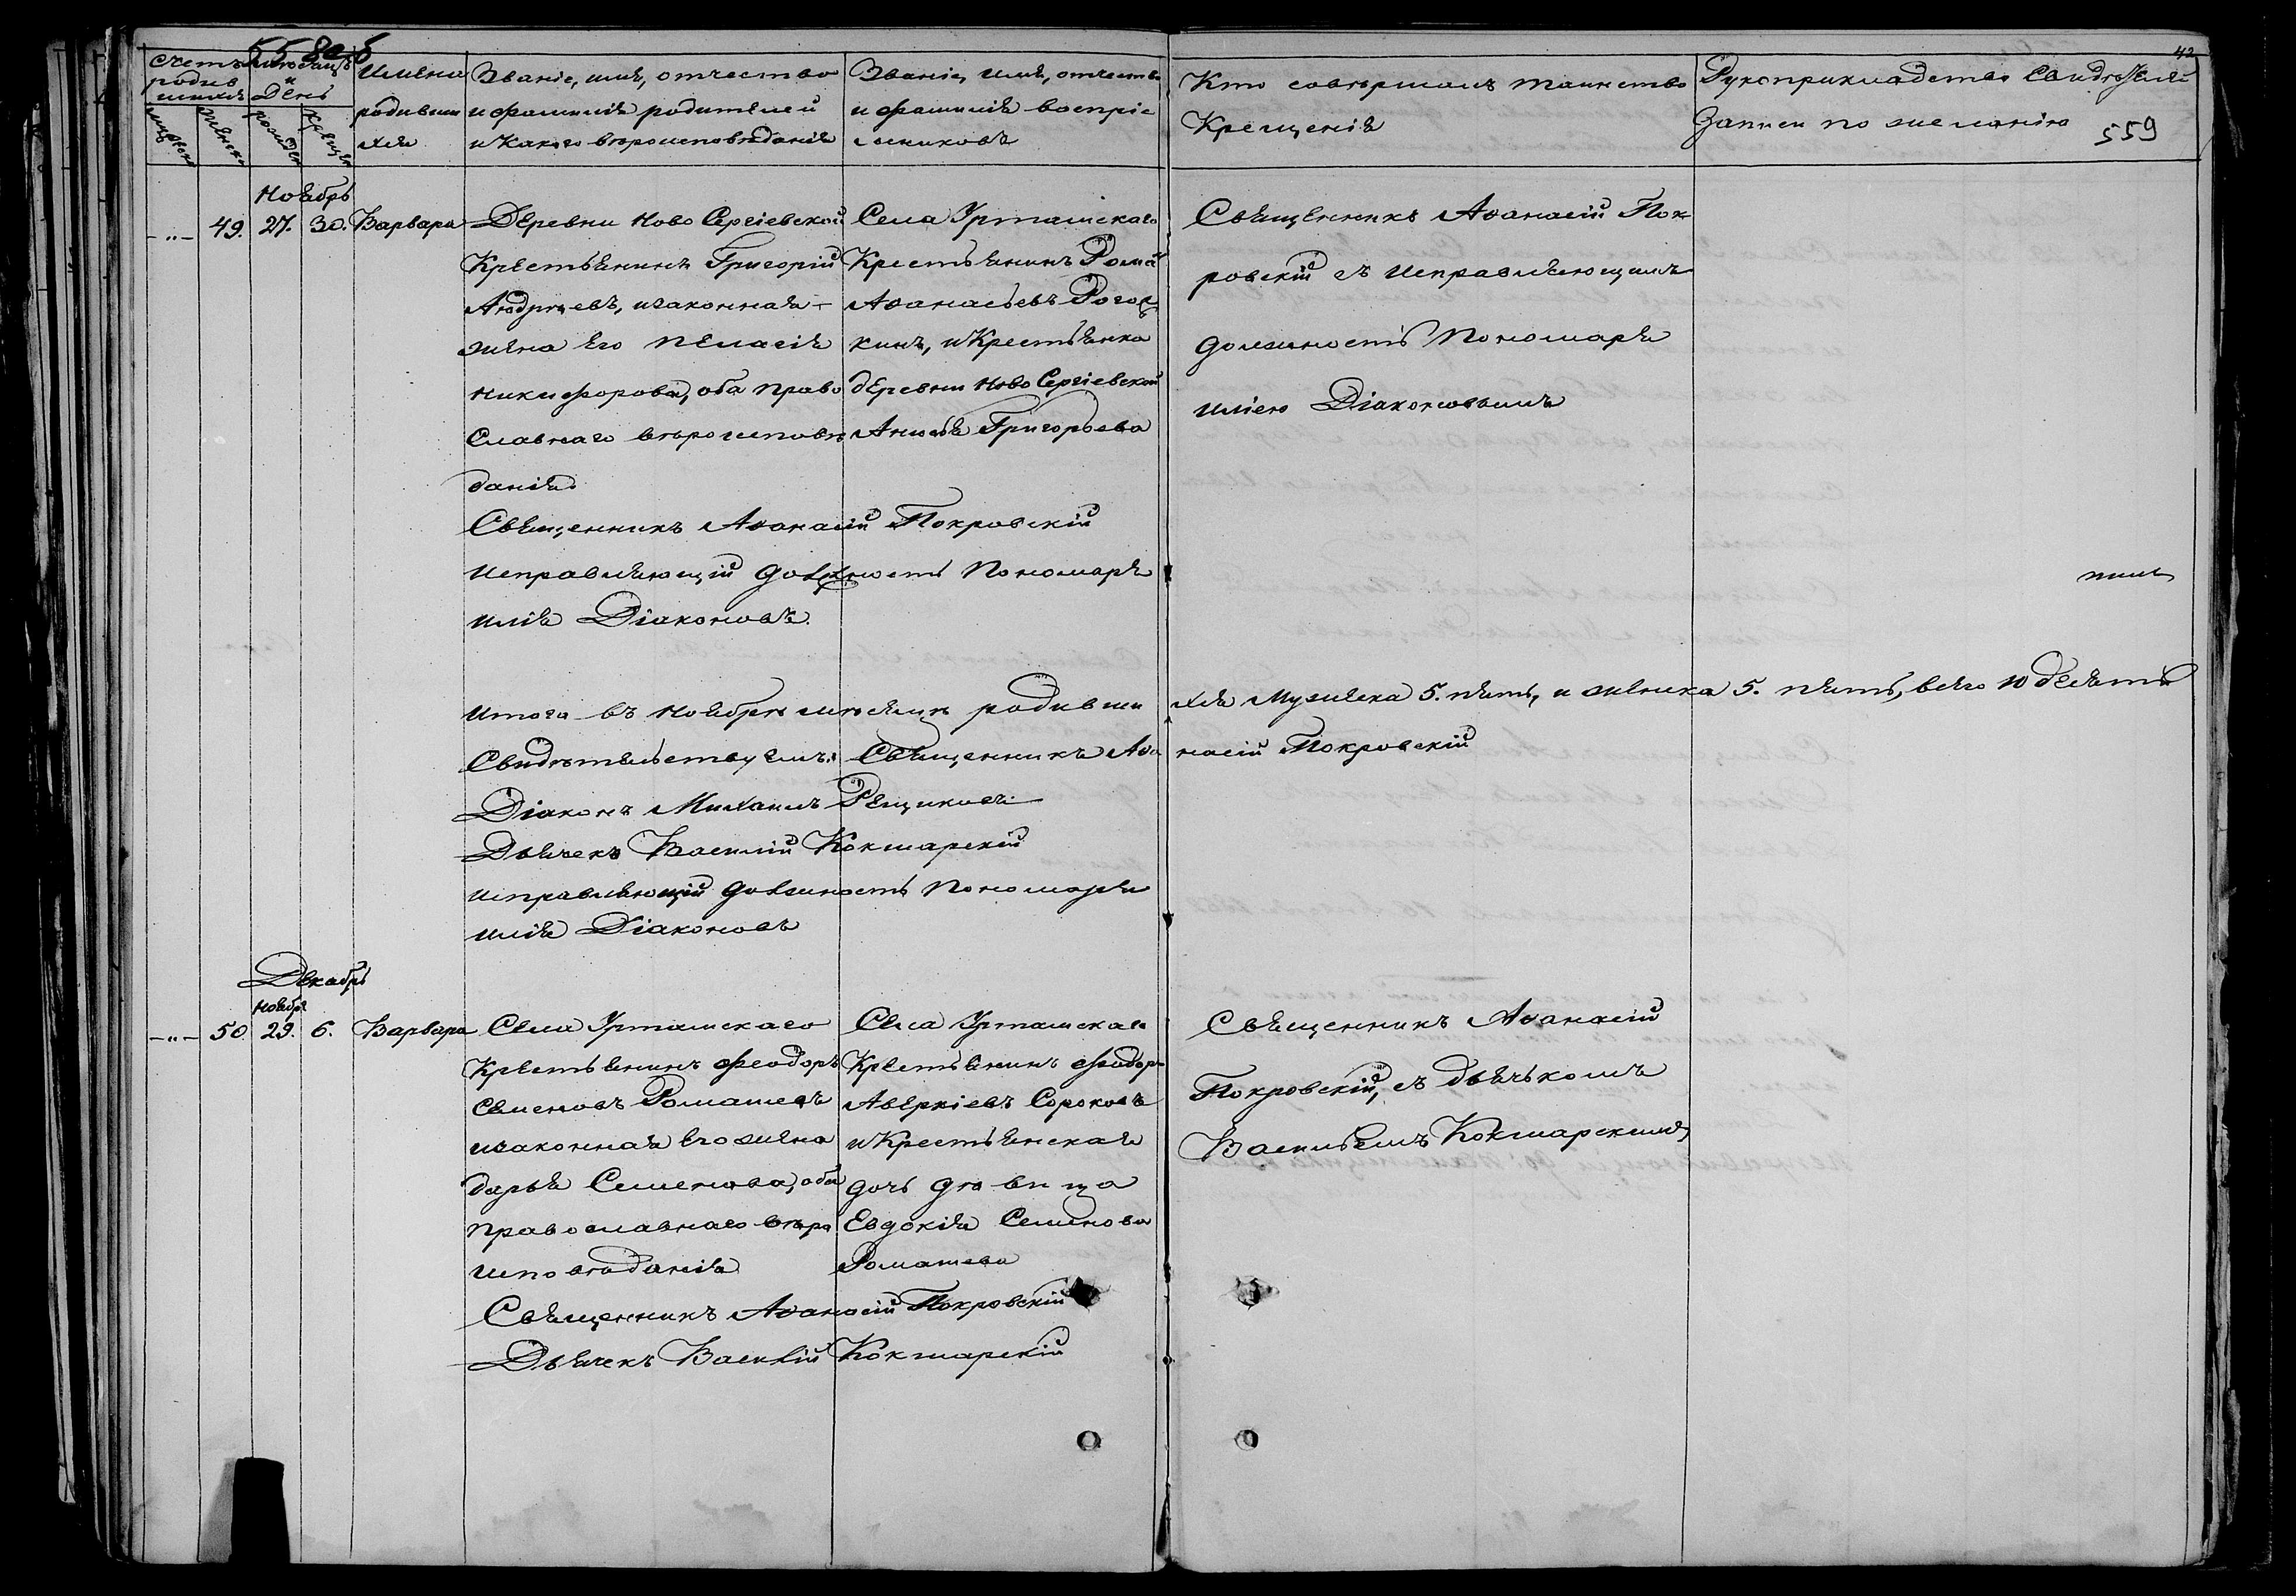 558об
42
559
Счетъ родившихся
мужеска
женска
Мѣсяцъ и День
рожден
крещен
Имена родившихся
Званіе, имя, отчество
и фамилія родителей
и какого вѣроисповѣданія
Званіе, имя, отчество
и фамилія воспріе
мниковъ
Кто совершалъ таинство
Крещенія
Рукоприкладство Свидѣтелей
Записи по желанію
Ноябрь
-„-
49.
27.
30.
Варвара
Деревни Ново Сергіевской
Крестьянинъ Григорій
Андреевъ, и законная
жена его Пелагія
Никифорова, оба право
славнаго вѣроисповѣ
данія
Села Урташскаго
Крестьянинъ Романъ
Аѳанасьевъ Рогоз
кинъ, и Крестьянка
деревни Ново Сергіевской
Григорьева
Священникъ Аѳанасій Пок
ровскій съ исправляющимъ
должность Пономаря
Иліею Діаконовымъ
Священникъ Аѳанасій Покровскій
Исправляющій должность Пономаря
Илія Діаконовъ
Итого въ Ноябрѣ мѣсяцѣ родивши
хся Мужеска 5. пять, и женска 5. пять, всего 10 десять
Свидѣтельствуемъ: Священникъ Аѳа
насій Покровскій
Діаконъ Михаилъ Рещиковъ
Дьячекъ Василій Кокшарскій
Исправляющій должность Пономаря
Илія Діаконовъ
Декабрь
Ноябр
-„-
50.
29.
6.
Варвара
Села Урташскаго
Крестьянинъ Феодоръ
Семеновъ Ромашевъ
и законная его жена
Дарья Семенова, оба
православнаго вѣро
исповѣданія
Села Урташскаго
Крестьянинъ Феодоръ
Аверкіевъ Сороковъ
и Крестьянская
дочь дѣвица
Евдокія Семенова
Ромашева
Священникъ Аѳанасій
Покровскій, съ дьячькомъ
Васильемъ Кокшарскимъ
Священникъ Аѳанасій Покровскій
Дьячекъ Василій Кокшарскій